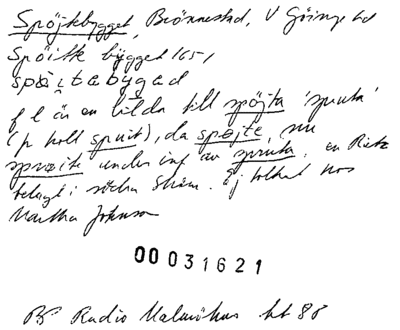 Spöjtebygget, Brönnestad, V Göinge hd
Spöitt bÿgget 1651
spøi̯tabÿgəd
f l är en bilda till spöjta 'spruta'
(jr holl spuit), da spøjte, nu
sprøite under inf av spruta, en Rietz
belagt i södra Skåne. Ej tolkat hos
Martha Johnson
00031621
BP Radio Malmöhus ht 88